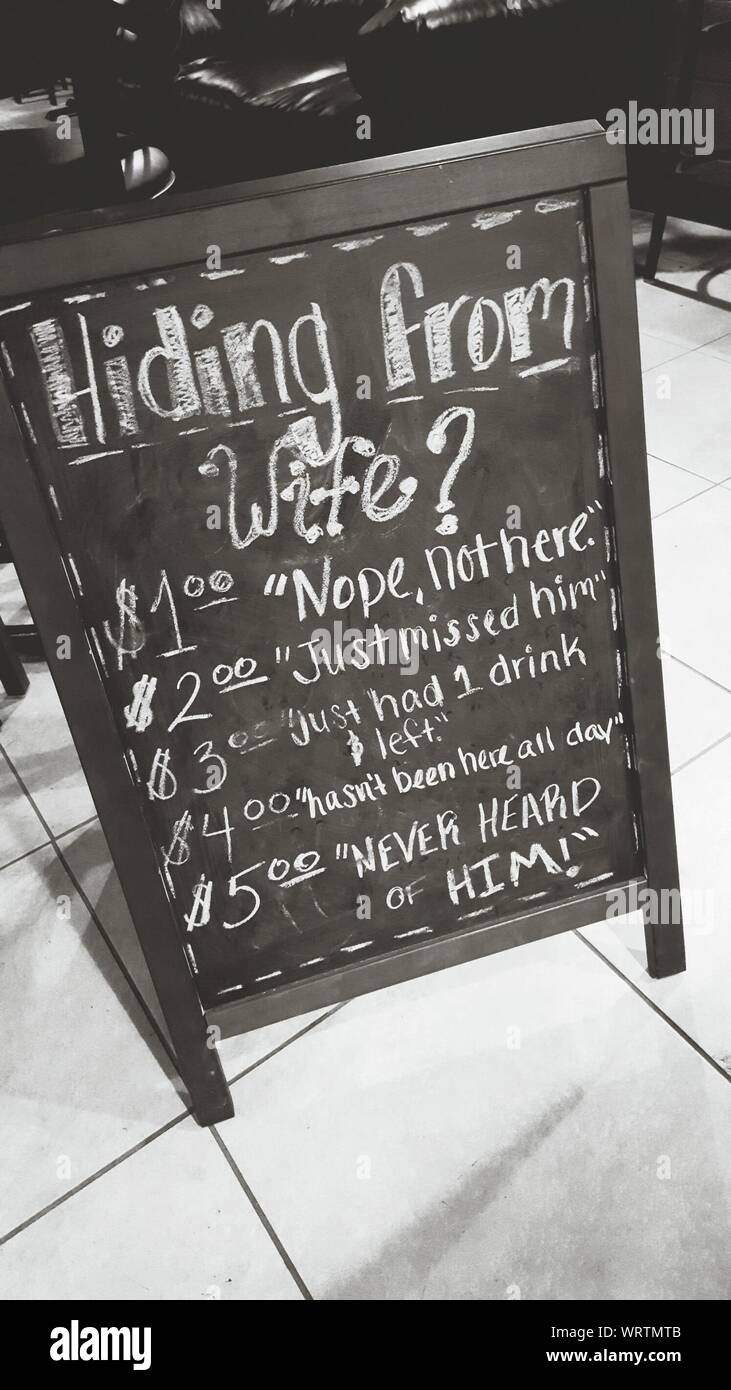 Hiding from
Wife?
$1.00 "Nope, not here."
$2.00 "Just missed him"
$3.00 "Just had 1 drink
& left."
$4.00 "hasn't been here all day"
$5.00 "NEVER HEARD
OF HIM!"
alamy
Image ID: WRTMTB
www.alamy.com